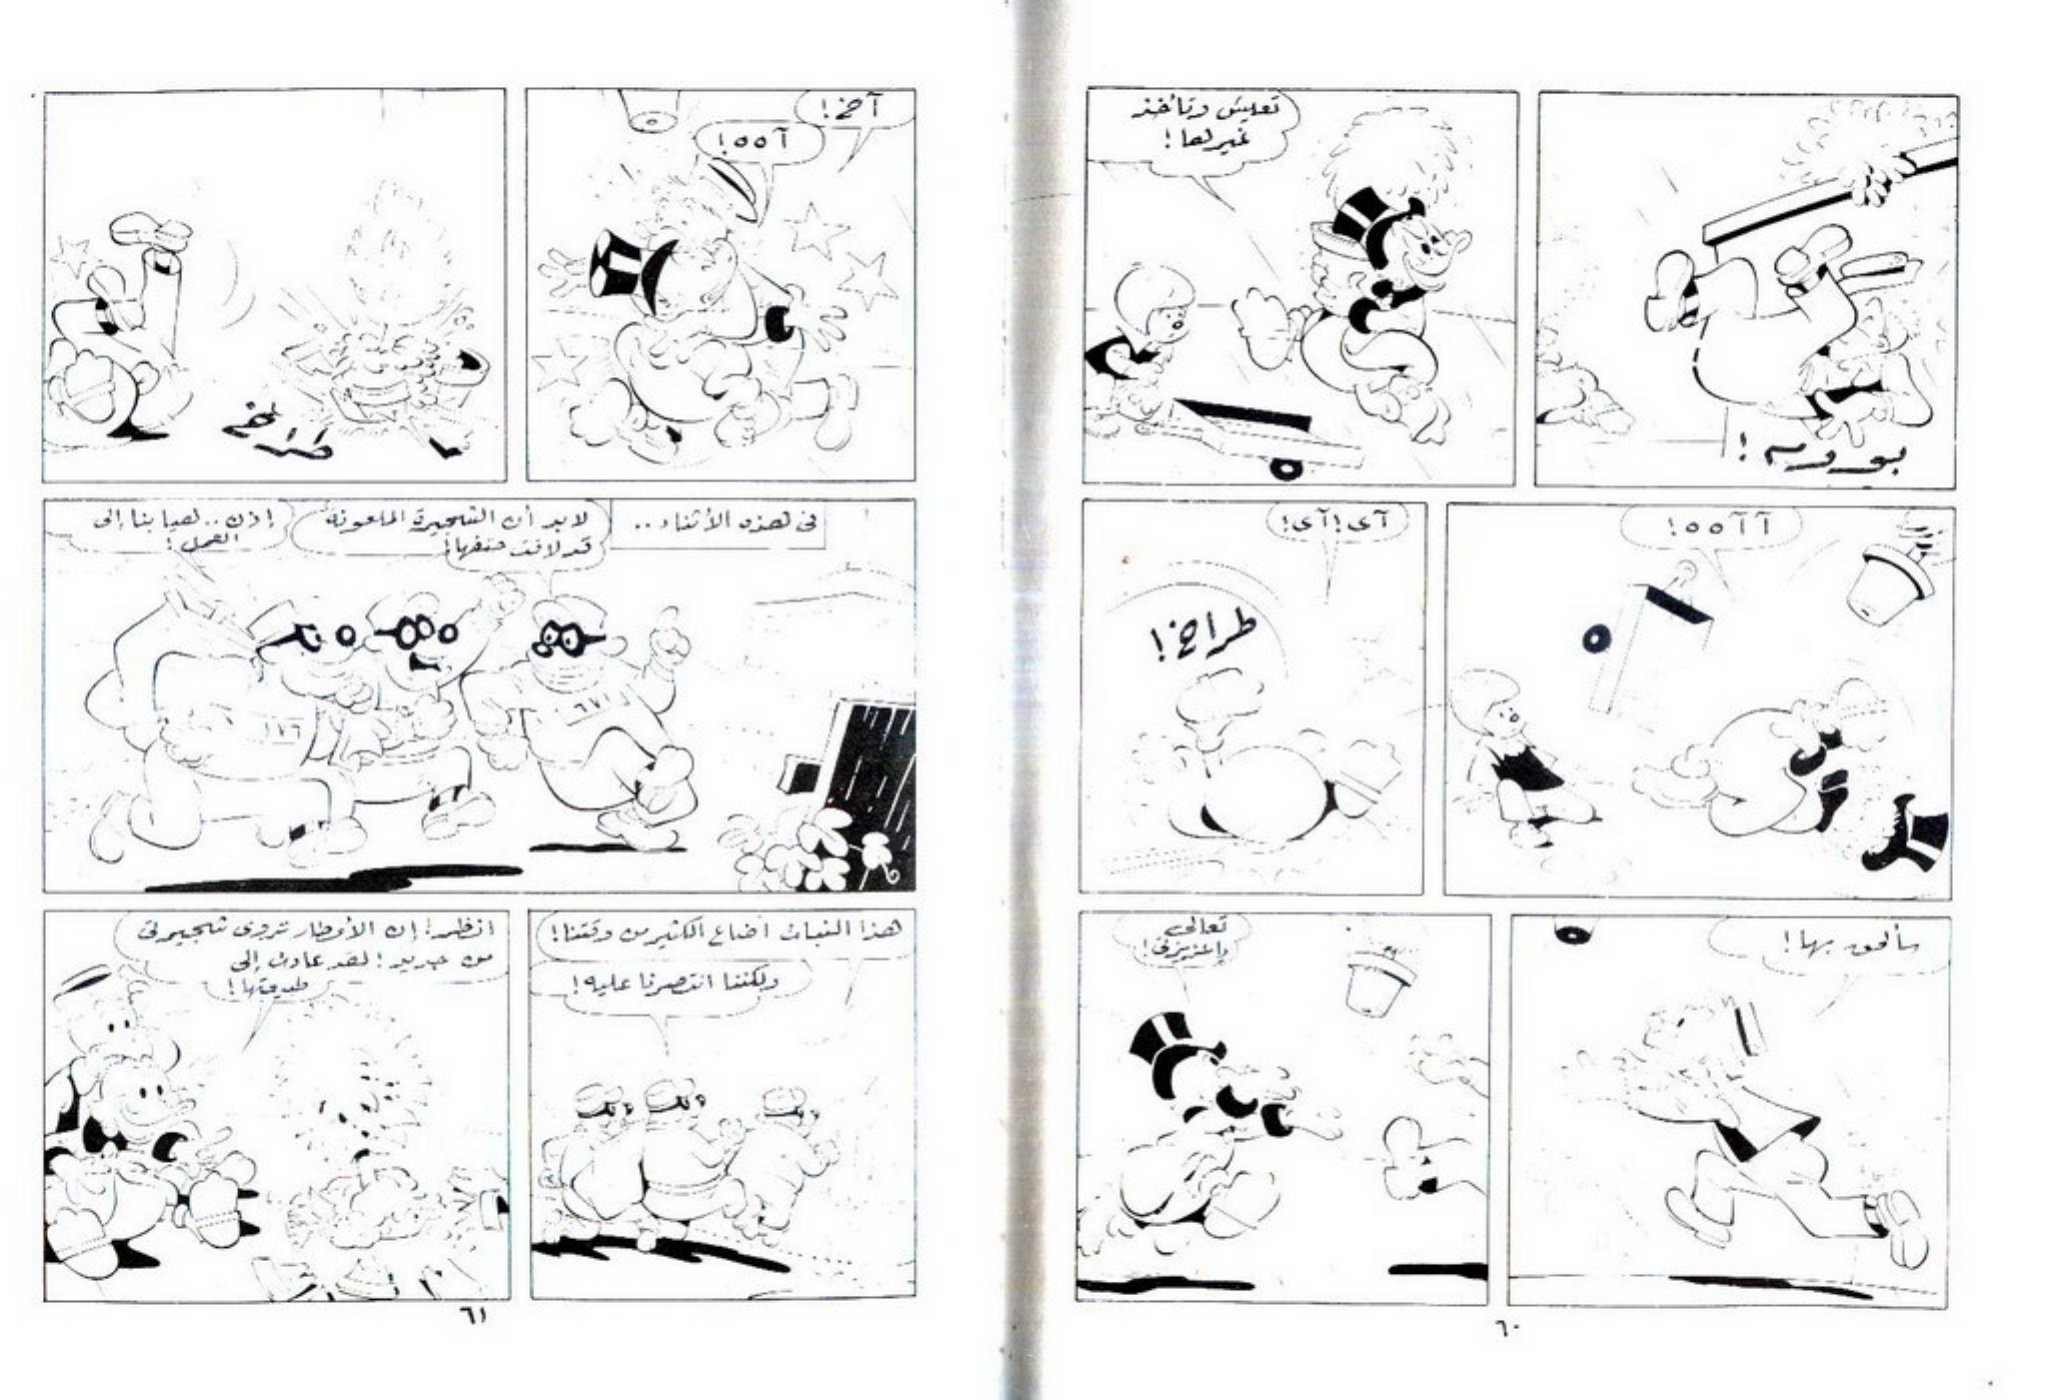 بوورم!
تعيش وتأخذ
غيرها!
آآ٥٥!
آى!آى!
طراخ!
سألحق بها!
تعالى
ياعزيزتى!
٦٠
آخ!
آ٥٥!
طراخ
فى هذه الأثناء..
لابد أن الشجيرة الملعونة
قد لاقت حتفها!
إذن.. هيا بنا إلى
العمل!
٦٧١
١٧٦
هذا النبات أضاع الكثير من وقتنا!
ولكننا انتصرنا عليه!
انظر! إن الأمطار تروى شجيرتى
من جديد! لقد عادت إلى
طبيعتها!
٦١